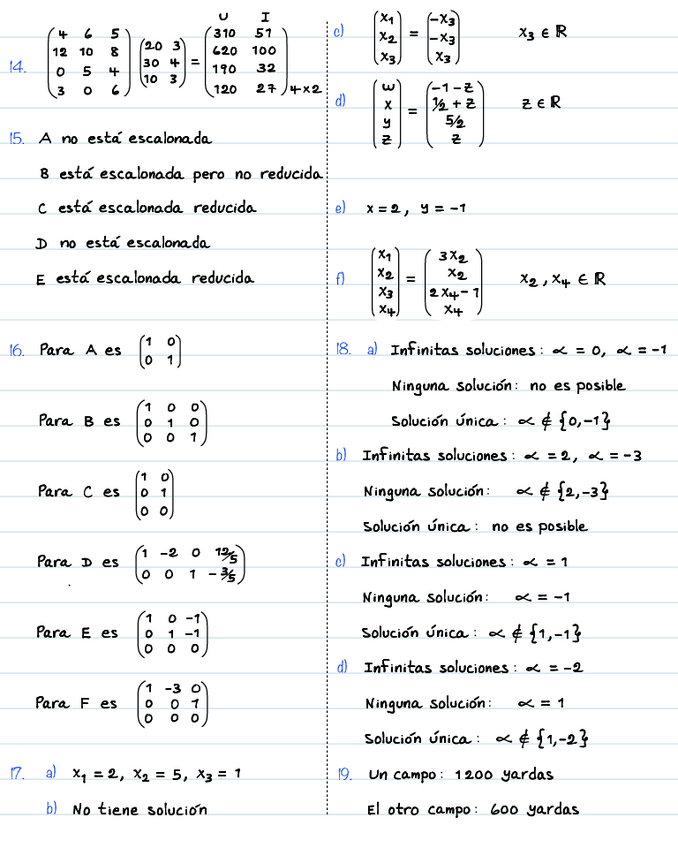 U I
14. (4 6 5) (20 3) = (310 51)
(12 10 8) (30 4) (620 100)
(0 5 4) (10 3) (190 32)
(3 0 6) (120 27) 4×2
15. A no está escalonada
B está escalonada pero no reducida
C está escalonada reducida
D no está escalonada
E está escalonada reducida
16. Para A es (1 0)
(0 1)
Para B es (1 0 0)
(0 1 0)
(0 0 1)
Para C es (1 0)
(0 1)
(0 0)
Para D es (1 -2 0 12/5)
(0 0 1 -3/5)
Para E es (1 0 -1)
(0 1 -1)
(0 0 0)
Para F es (1 -3 0)
(0 0 1)
(0 0 0)
17. a) x₁ = 2, x₂ = 5, x₃ = 1
b) No tiene solución
c) (x₁) = (-x₃) x₃ ∈ ℝ
(x₂) (-x₃)
(x₃) (x₃)
d) (ω) = (-1-z) z ∈ ℝ
(x) (1/2+z)
(y) (5/2)
(z) (z)
e) x=2, y=-1
f) (x₁) = (3x₂) x₂, x₄ ∈ ℝ
(x₂) (x₂)
(x₃) (2x₄-1)
(x₄) (x₄)
18. a) Infinitas soluciones: α = 0, α = -1
Ninguna solución: no es posible
Solución única: α ∉ {0,-1}
b) Infinitas soluciones: α = 2, α = -3
Ninguna solución: α ∉ {2,-3}
Solución única: no es posible
c) Infinitas soluciones: α = 1
Ninguna solución: α = -1
Solución única: α ∉ {1,-1}
d) Infinitas soluciones: α = -2
Ninguna solución: α = 1
Solución única: α ∉ {1,-2}
19. Un campo: 1200 yardas
El otro campo: 600 yardas